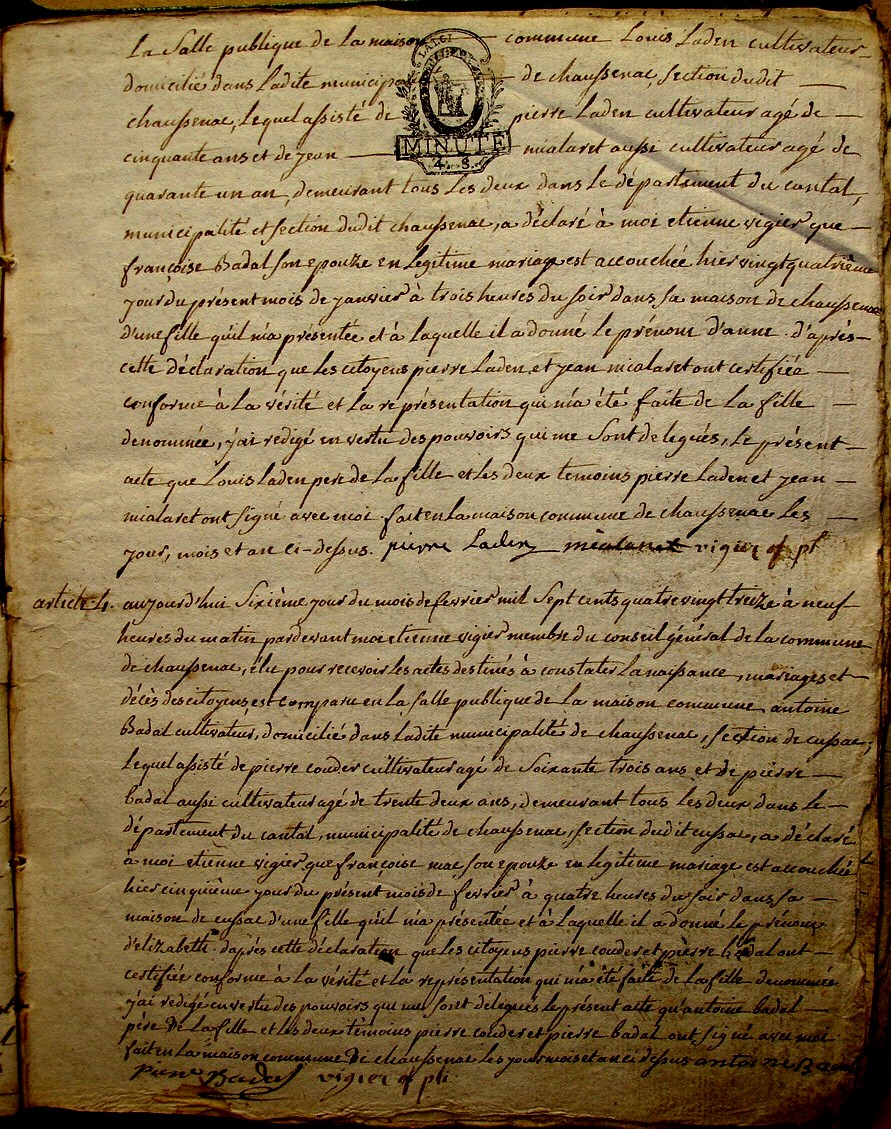 la Salle publique de la maison — commune Louis Laden cultivateur
domicilié dans ladite municipa — de chaussenac, section dudit —
chaussenac, lequel assisté de pierre Laden cultivateur agé de —
MINUTE
4. S.
cinquante ans et de jean — mialaret aussi cultivateur agé de
quarante un an, demeurant tous les deux dans le département du cantal,
municipalité et section dudit chaussenac, a déclaré à moi etienne vigier que —
françoise Badal son epouze en legitime mariage est accouchée hier vingt quatrième
jour du présent mois de janvier à trois heures du soir dans sa maison de chaussenac
d'une fille qu'il m'a présentée et à laquelle il a donné le prénom d'anne. d'après —
cette déclaration que les citoyens pierre Laden et jean mialaret ont certifiée —
conforme à la vérité et la représentation qui m'a été faite de la fille —
denommée, j'ai redigé en vertu des pouvoirs qui me sont delegués, le présent —
acte que Louis Laden pere de la fille et les deux temoins pierre Laden et jean —
mialaret ont signé avec moi. fait en la maison commune de chaussenac les —
jour, mois et an ci-dessus. pierre Laden mialaret vigier of pb
article 4. aujourd'hui Sixième jour du mois de fevrier mil Sept cents quatre vingt treize à neuf
heures du matin pardevant moi etienne vigier membre du conseil général de la commune
de chaussenac, élu pour recevoir les actes destinés à constater la naissance, mariages et
décès des citoyens est comparu en la salle publique de la maison commune antoine
Badal cultivateur, domicilié dans ladite municipalité de chaussenac, section de cussac,
lequel assisté de pierre couder cultivateur agé de Soixante trois ans et de pierre —
badal aussi cultivateur agé de trente deux ans, demeurant tous les deux dans le —
département du cantal, municipalité de chaussenac, section dudit cussac, a déclaré
à moi etienne vigier que françoise mac son epouze en legitime mariage est accouchée
hier cinquième jour du présent mois de fevrier à quatre heures du soir dans sa —
maison de cussac d'une fille qu'il m'a présentée et à laquelle il a donné le prénom
d'elizabeth. d'après cette déclaration que les citoyens pierre couder et pierre badal ont —
certifiée conforme à la vérité et la représentation qui m'a été faite de la fille denommée
j'ai redigé en vertu des pouvoirs qui me sont delegués le présent acte qu'antoine badal —
père de la fille et les deux témoins pierre couder et pierre badal ont signé avec moi
fait en la maison commune de chaussenac les jour mois et an ci dessus antoine Badal
pierre Badal vigier of pb